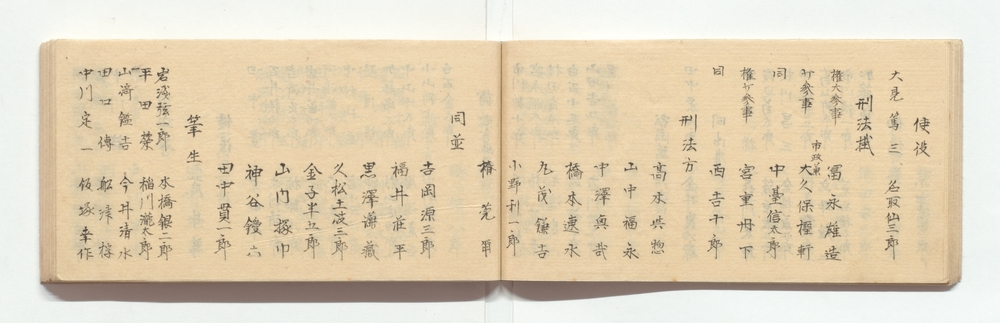 使役
大見篤三 名取仙三郎
刑法掛
権大参事 冨永雄造
少参事 市政兼 大久保樫軒
同 中墓信太郎
権少参事 宮重丹下
同 西吉十郎
刑法方
高木共惣
山中福永
中澤與哉
橋本速水
丸茂鎌吉
小野利一郎
椿 莞爾
同並
吉岡源三郎
福井庄平
黒澤謙蔵
久松土岐三郎
金子半五郎
山門琢巾
神谷鑁六
田中貫一郎
筆生
岩浅弦一郎 水橋銀二郎
平田榮 稲川瀧太郎
山崎鑑吉 今井清水
田口傳
中川定一 飯塚幸作